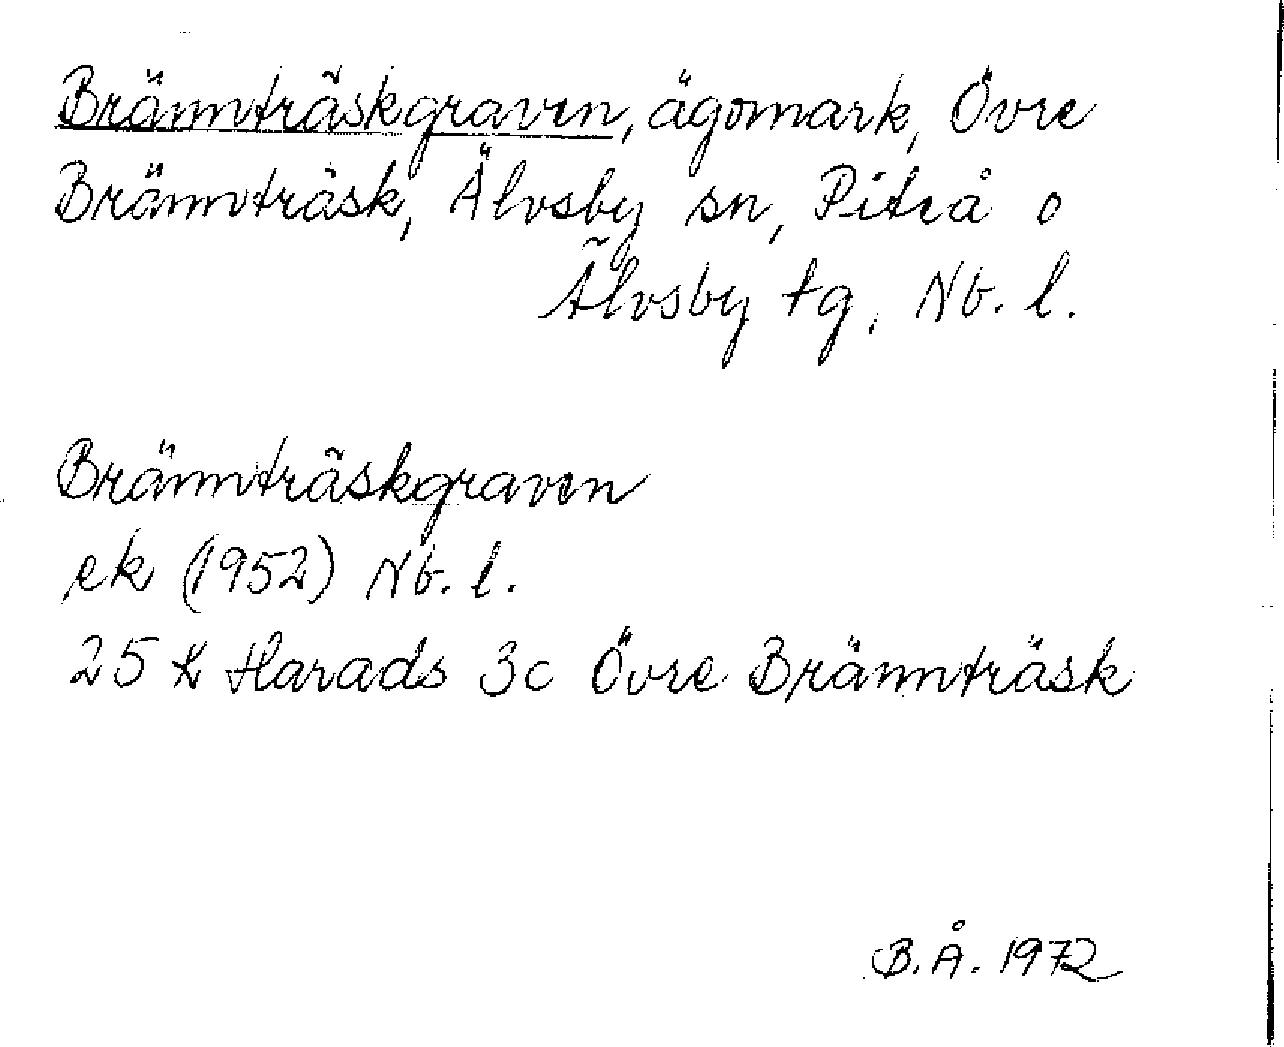 Brännträskgraven, ägomark, Övre
Brännträsk, Älvsby sn, Piteå o
Älvsby tg, Nb. l.
Brännträskgraven
ek (1952) Nb. l.
25 L Harads 3c Övre Brännträsk
B.Å. 1972